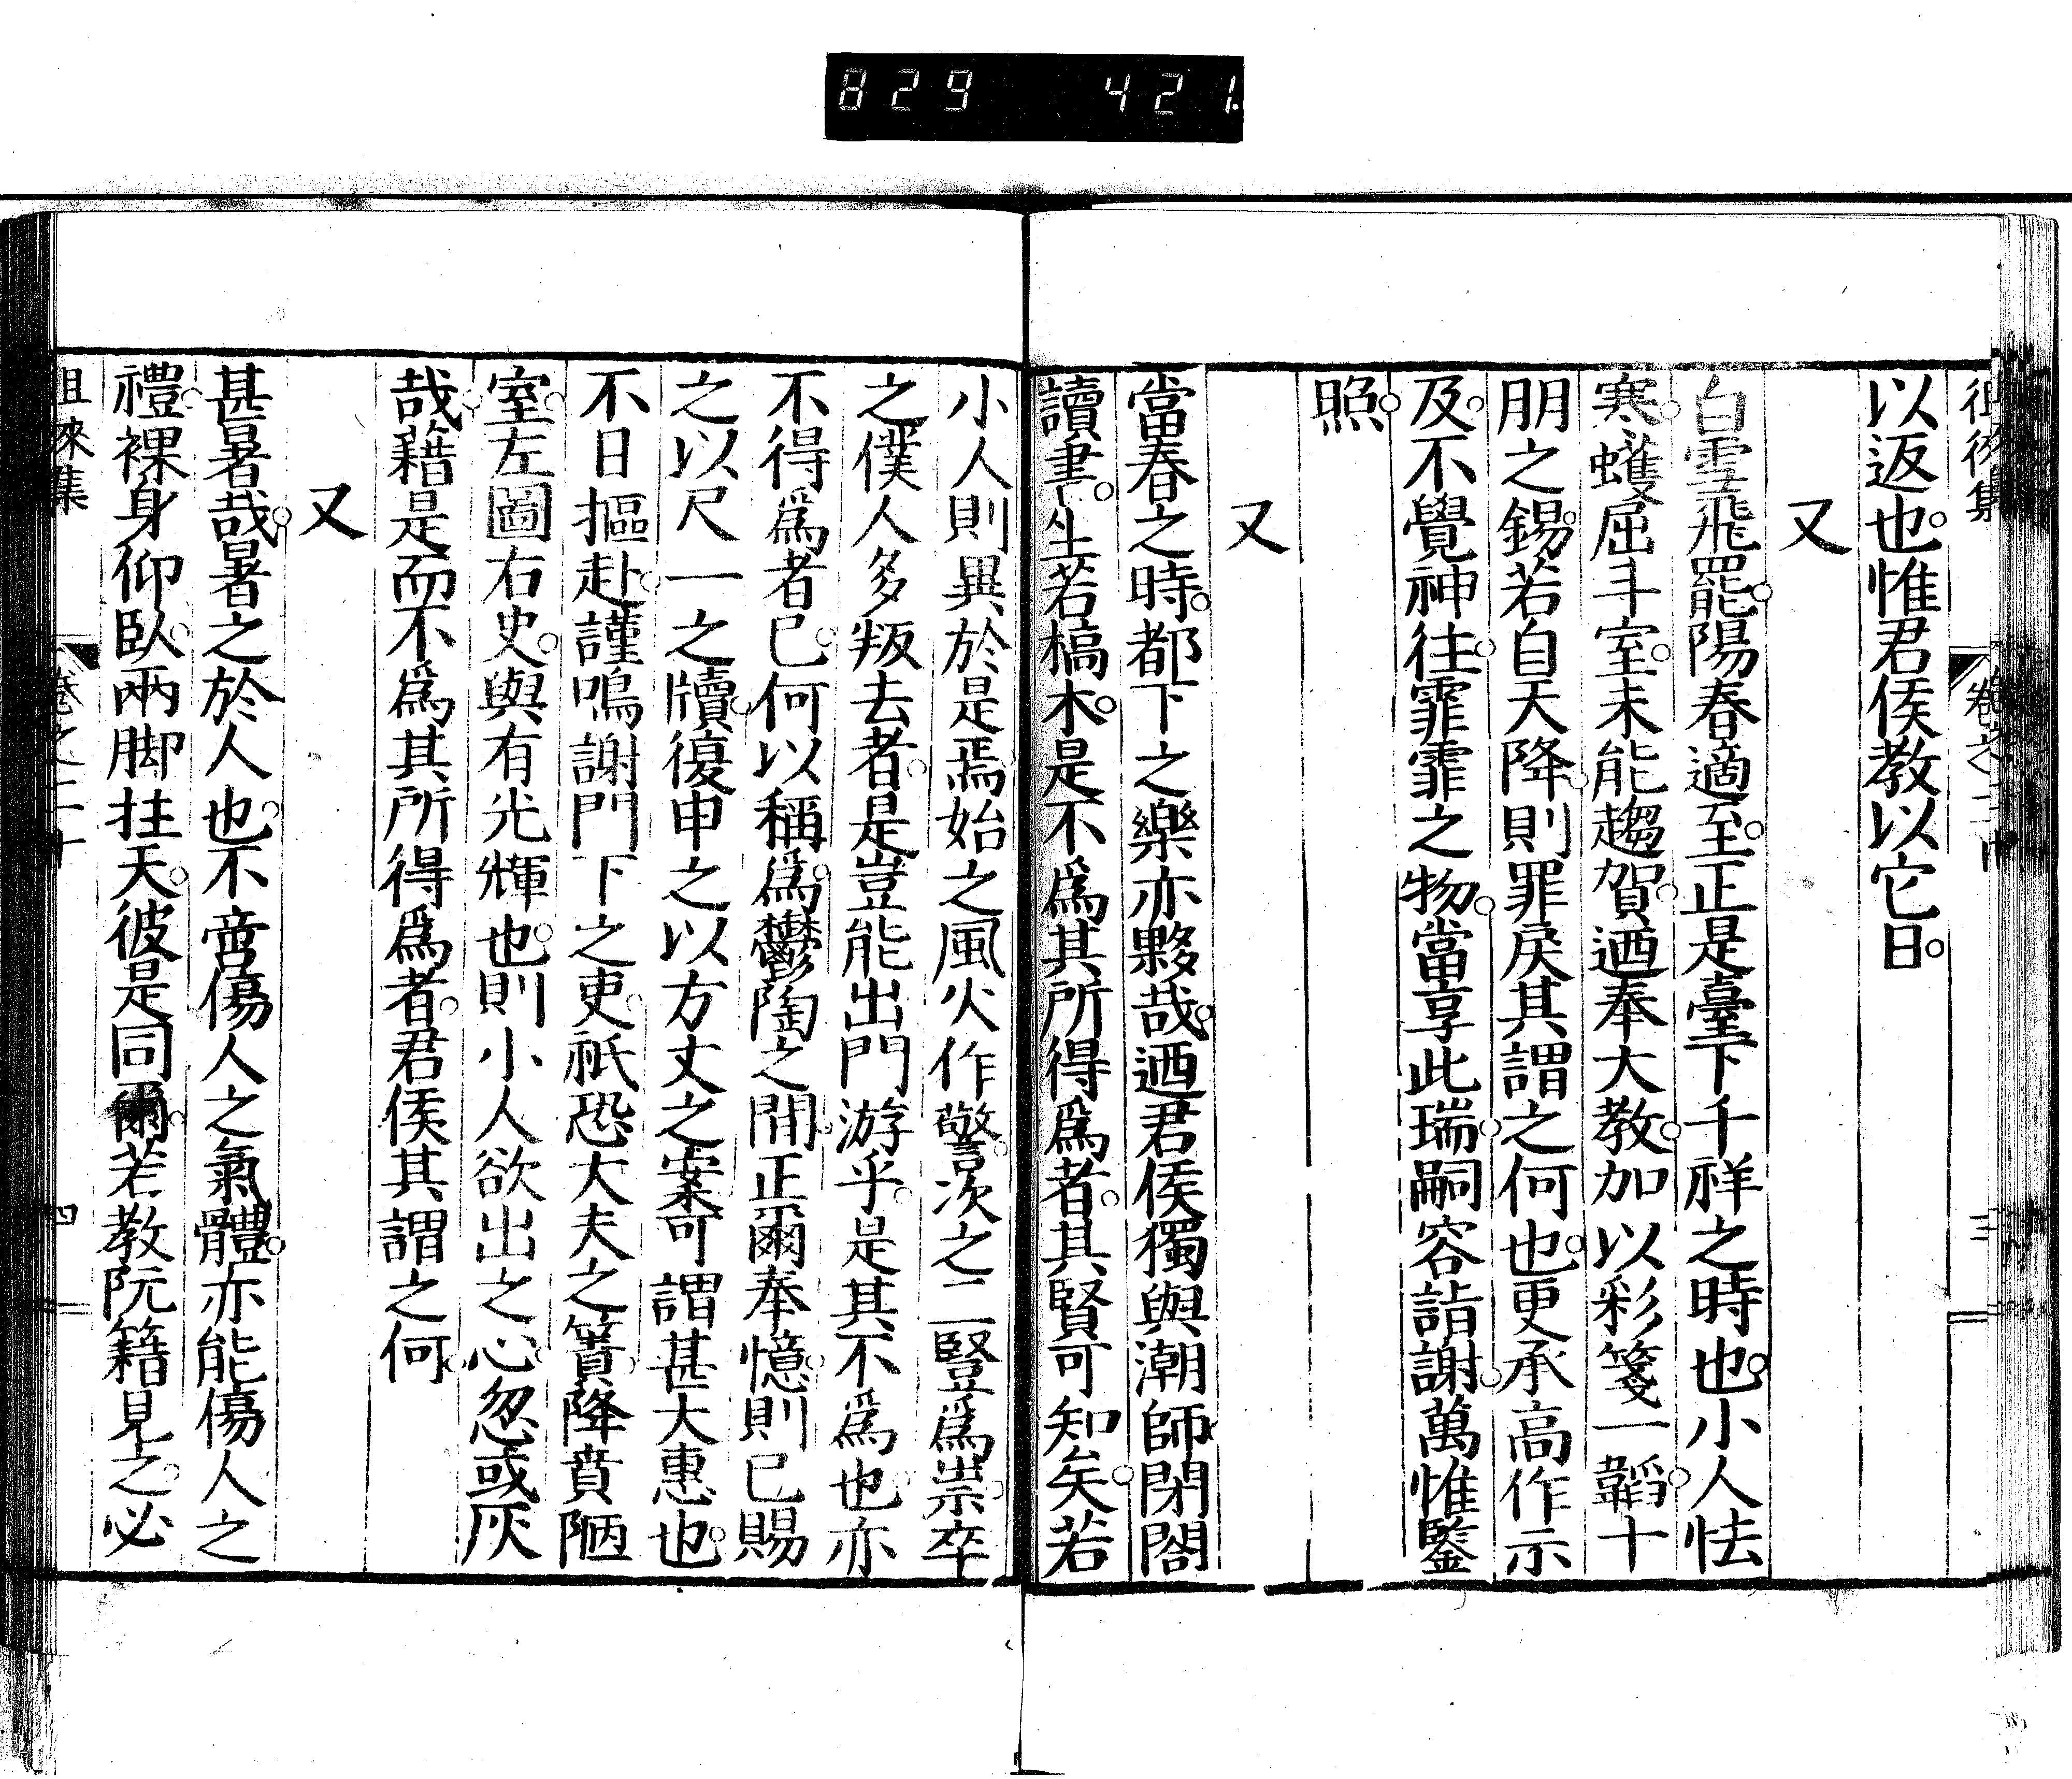 829 421
徂徠集 卷之二十 三
以返也。惟君侯教以它日。
又
白雪飛罷。陽春適至。正是臺下千祥之時也。小人怯
寒。蠖屈斗室。未能趨賀。迺奉大教。加以彩箋一韜。十
朋之錫。若自天降。則罪戾其謂之何也。更承高作示
及。不覺神往。霏霏之物。當享此瑞。嗣容詣謝。萬惟鑒
照。
又
當春之時。都下之樂亦夥哉。迺君侯獨與潮師閉閤
讀書。坐若槁木。是不爲其所得爲者。其賢可知矣。若
小人則異於是焉。始之風火作警。次之二豎爲祟。卒
之僕人多叛去者。是豈能出門游乎。是其不爲也亦
不得爲者已。何以稱爲。鬱陶之間。正爾奉憶。則已賜
之以尺一之牘。復申之以方丈之案。可謂甚大惠也。
不日摳赴。謹鳴謝門下之吏。祇恐大夫之簀。降賁陋
室。左圖右史。與有光輝也。則小人欲出之心。忽或灰
哉。藉是而不爲其所得爲者。君侯其謂之何。
又
甚暑哉。暑之於人也。不啻傷人之氣體。亦能傷人之
禮。裸身仰臥。兩脚挂天。彼是同爾。若教阮籍見之。必
徂徠集 卷之二十 四